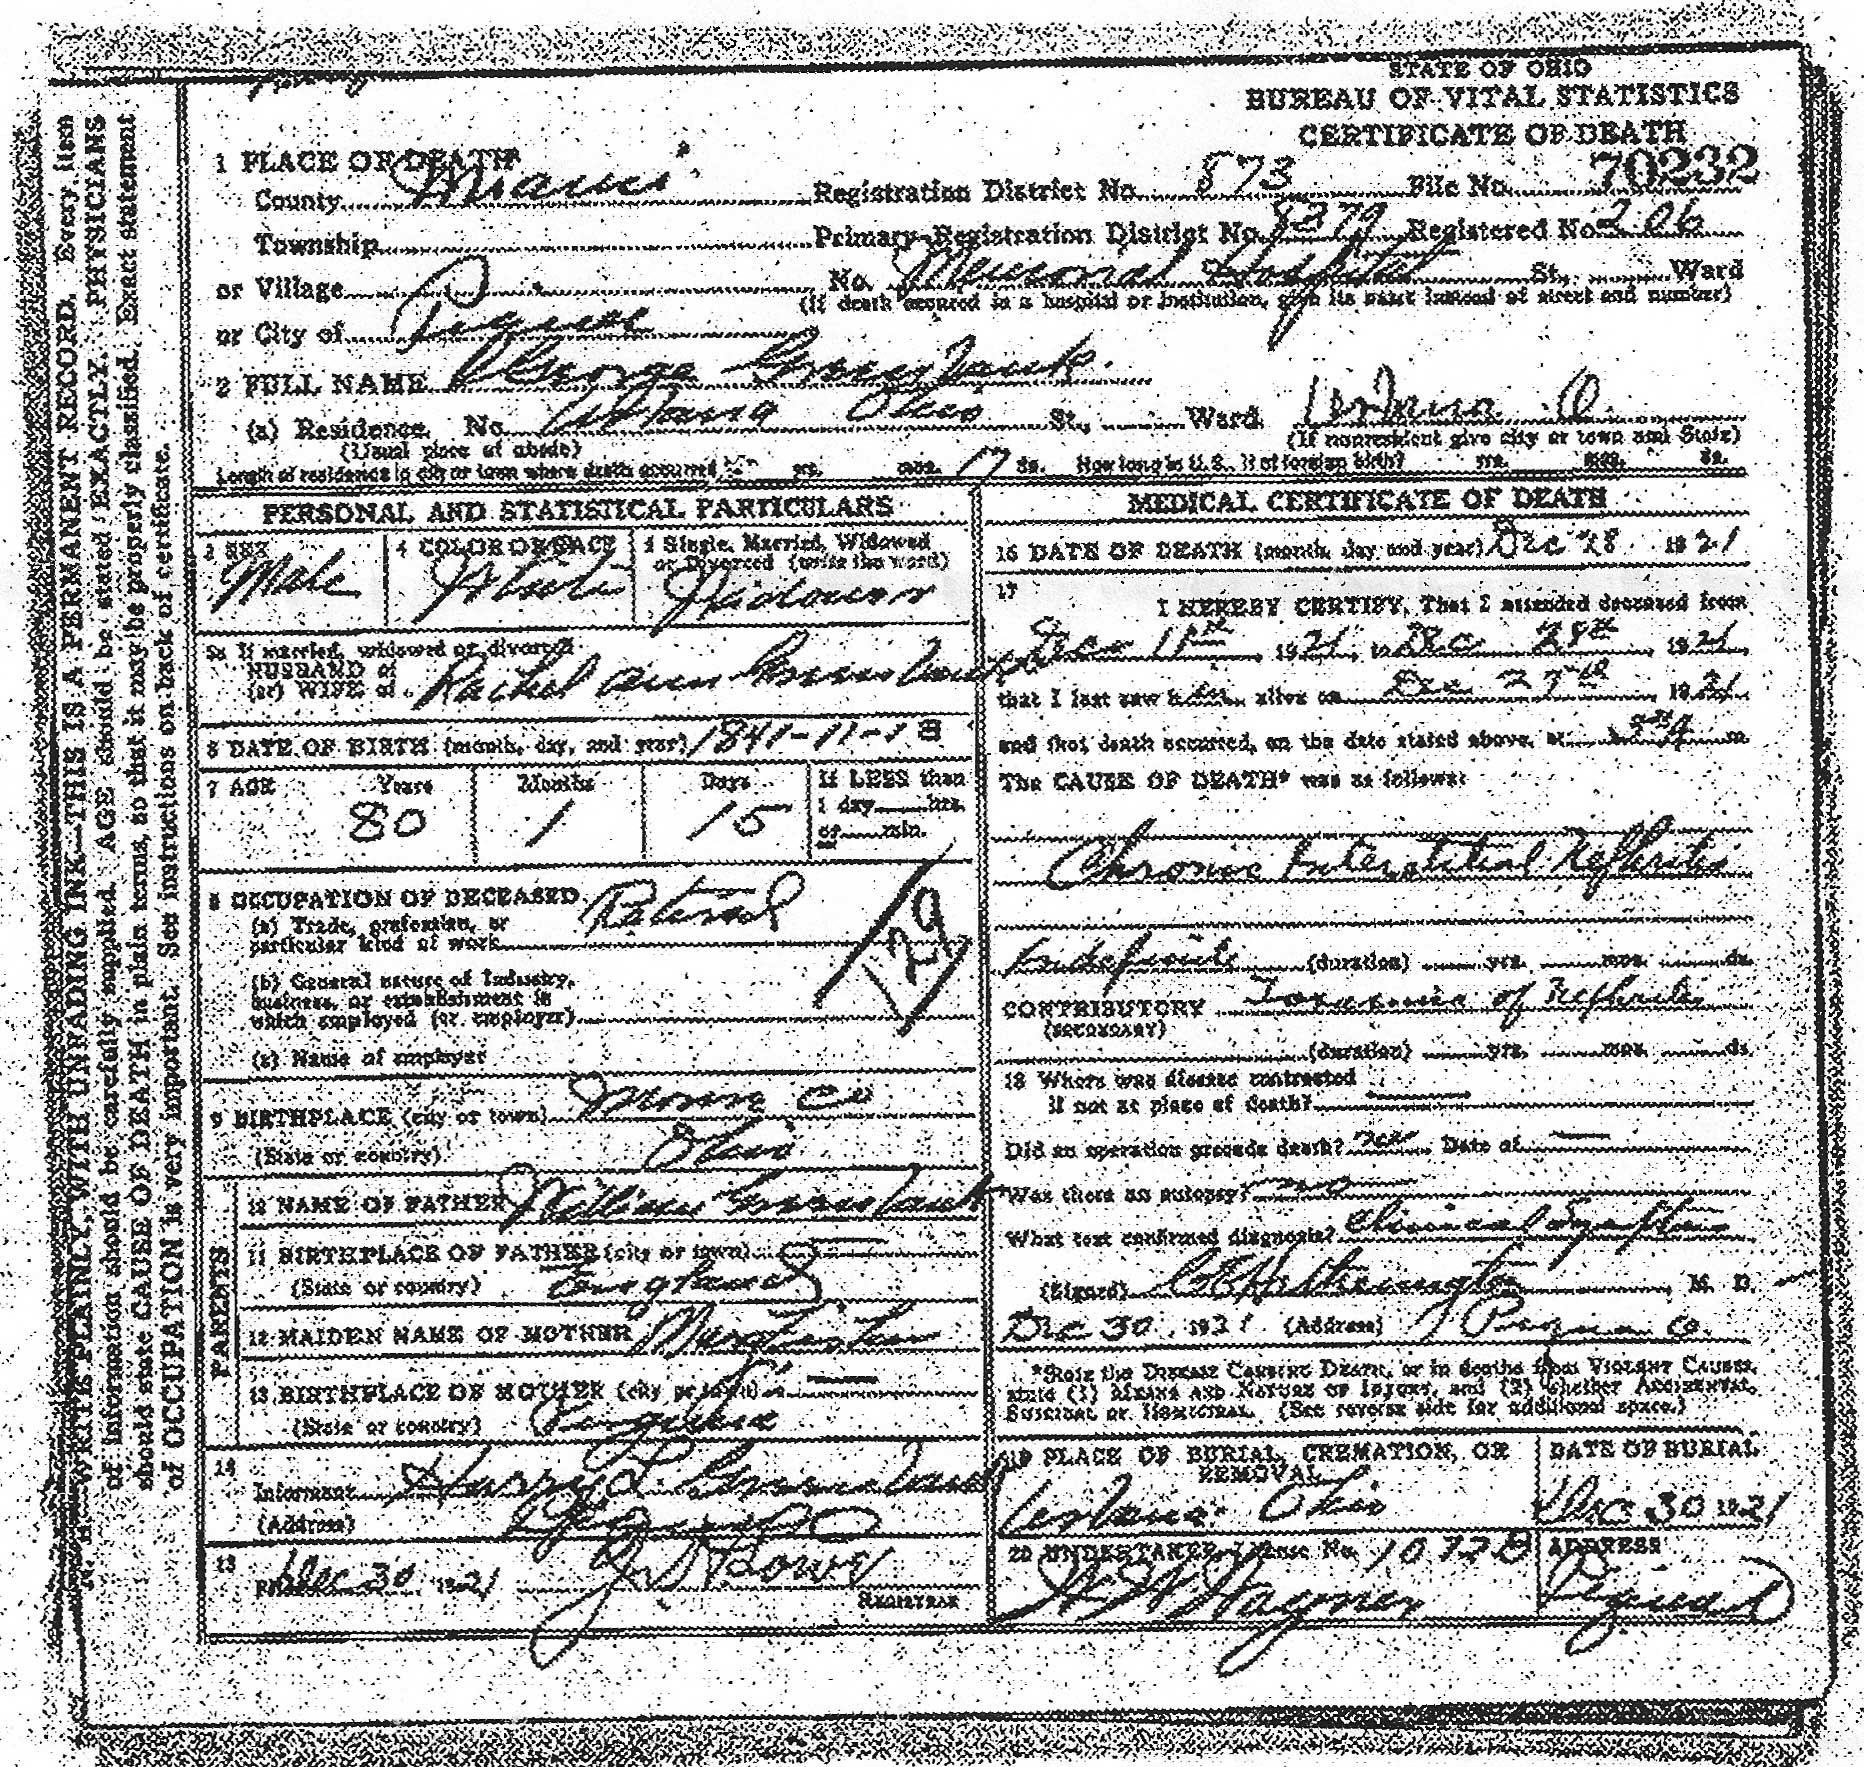 STATE OF OHIO
BUREAU OF VITAL STATISTICS
CERTIFICATE OF DEATH
1 PLACE OF DEATH
County Miami Registration District No. 873 File No. 70232
Township Primary Registration District No. 8379 Registered No. 206
or Village No. Memorial Hospital St., Ward
(If death occured in a hospital or institution, give its name instead of street and number)
or City of Piqua
2 FULL NAME George Greenbank
(a) Residence. No. Urbana Ohio St., Ward. Urbana O
(Usual place of abode) (If nonresident give city or town and State)
Length of residence in city or town where death occurred yrs. mos. 17 ds. How long in U.S., if of foreign birth? yrs. mos. ds.
PERSONAL AND STATISTICAL PARTICULARS
3 SEX 4 COLOR OR RACE 5 Single, Married, Widowed
or Divorced (write the word)
Male White Widower
5a If married, widowed or divorced
HUSBAND of
(or) WIFE of Rachel Ann Greenbank
6 DATE OF BIRTH (month, day, and year) 1841-11-13
7 AGE Years Months Days If LESS than
1 day hrs.
or min.
80 1 15
8 OCCUPATION OF DECEASED
(a) Trade, profession, or
particular kind of work Retired
129
(b) General nature of Industry,
business, or establishment in
which employed (or employer)
(c) Name of employer
9 BIRTHPLACE (city or town) Monroe Co
(State or country) Ohio
PARENTS
10 NAME OF FATHER William Greenbank
11 BIRTHPLACE OF FATHER (city or town)
(State or country) England
12 MAIDEN NAME OF MOTHER
13 BIRTHPLACE OF MOTHER (city or town)
(State or country)
14
Informant Harry L. Greenbank
(Address) Piqua O
15
Filed Dec 30 1921
REGISTRAR
MEDICAL CERTIFICATE OF DEATH
16 DATE OF DEATH (month, day and year) Dec 28 1921
17
I HEREBY CERTIFY, That I attended deceased from
Dec 11th, 1921, to Dec 28th, 1921,
that I last saw him alive on Dec 27th, 1921
and that death occurred, on the date stated above, at m
The CAUSE OF DEATH* was as follows:
Chronic Interstitial Nephritis
Indefinite (duration) yrs. mos. ds.
CONTRIBUTORY Toxaemia of Nephritis
(SECONDARY)
(duration) yrs. mos. ds.
18 Where was disease contracted
if not at place of death?
Did an operation precede death? no Date of
Was there an autopsy? no
What test confirmed diagnosis? Clinical Symptoms
(Signed) M. D.
Dec 30, 1921 (Address) Piqua O.
*State the DISEASE CAUSING DEATH, or in deaths from VIOLENT CAUSES,
state (1) MEANS AND NATURE OF INJURY, and (2) whether ACCIDENTAL,
SUICIDAL or HOMICIDAL. (See reverse side for additional space.)
19 PLACE OF BURIAL, CREMATION, OR
REMOVAL
DATE OF BURIAL
Urbana Ohio Dec 30 1921
20 UNDERTAKER, License No. 1072B ADDRESS
Wagner Piqua O
WRITE PLAINLY, WITH UNFADING INK—THIS IS A PERMANENT RECORD. Every item
of information should be carefully supplied. AGE should be stated EXACTLY. PHYSICIANS
should state CAUSE OF DEATH in plain terms, so that it may be properly classified. Exact statement
of OCCUPATION is very important. See instructions on back of certificate.